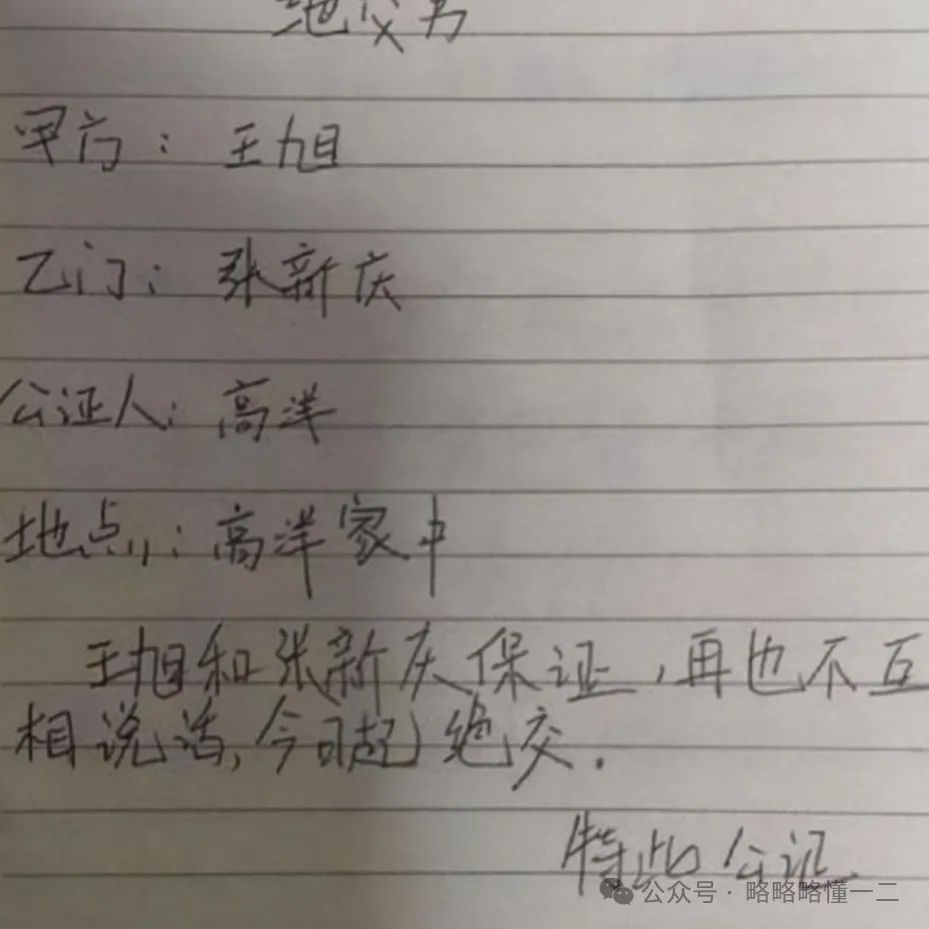 绝交书
甲方：王旭
乙门：张新庆
公证人：高洋
地点：高洋家中
王旭和张新庆保证，再也不互
相说话，今日起绝交．
特此公证
公众号·略略略懂一二